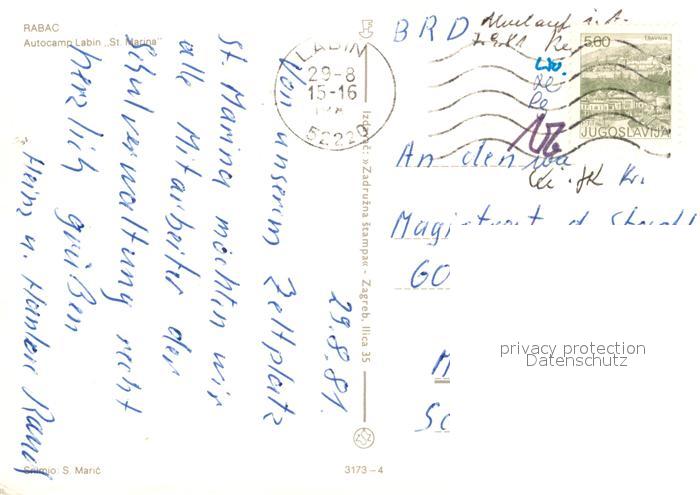 RABAC
Autocamp Labin „St. Marina"
29.8.81.
Von unserem Zeltplatz
St. Marina möchten wir
alle Mitarbeiter der
Schulverwaltung recht
herzlich grüßen
Heinz u.
Snimio: S. Marić
3173-4
Izdavač: »Zadružna štampa« - Zagreb, Ilica 35
LABIN
29-8
15-16
52220
5,60
TRAVNIK
JUGOSLAVIJA
i. A.
7.9.81
BRD
An den
Magistrat d. Stadt
60
M
Sc
privacy protection
Datenschutz